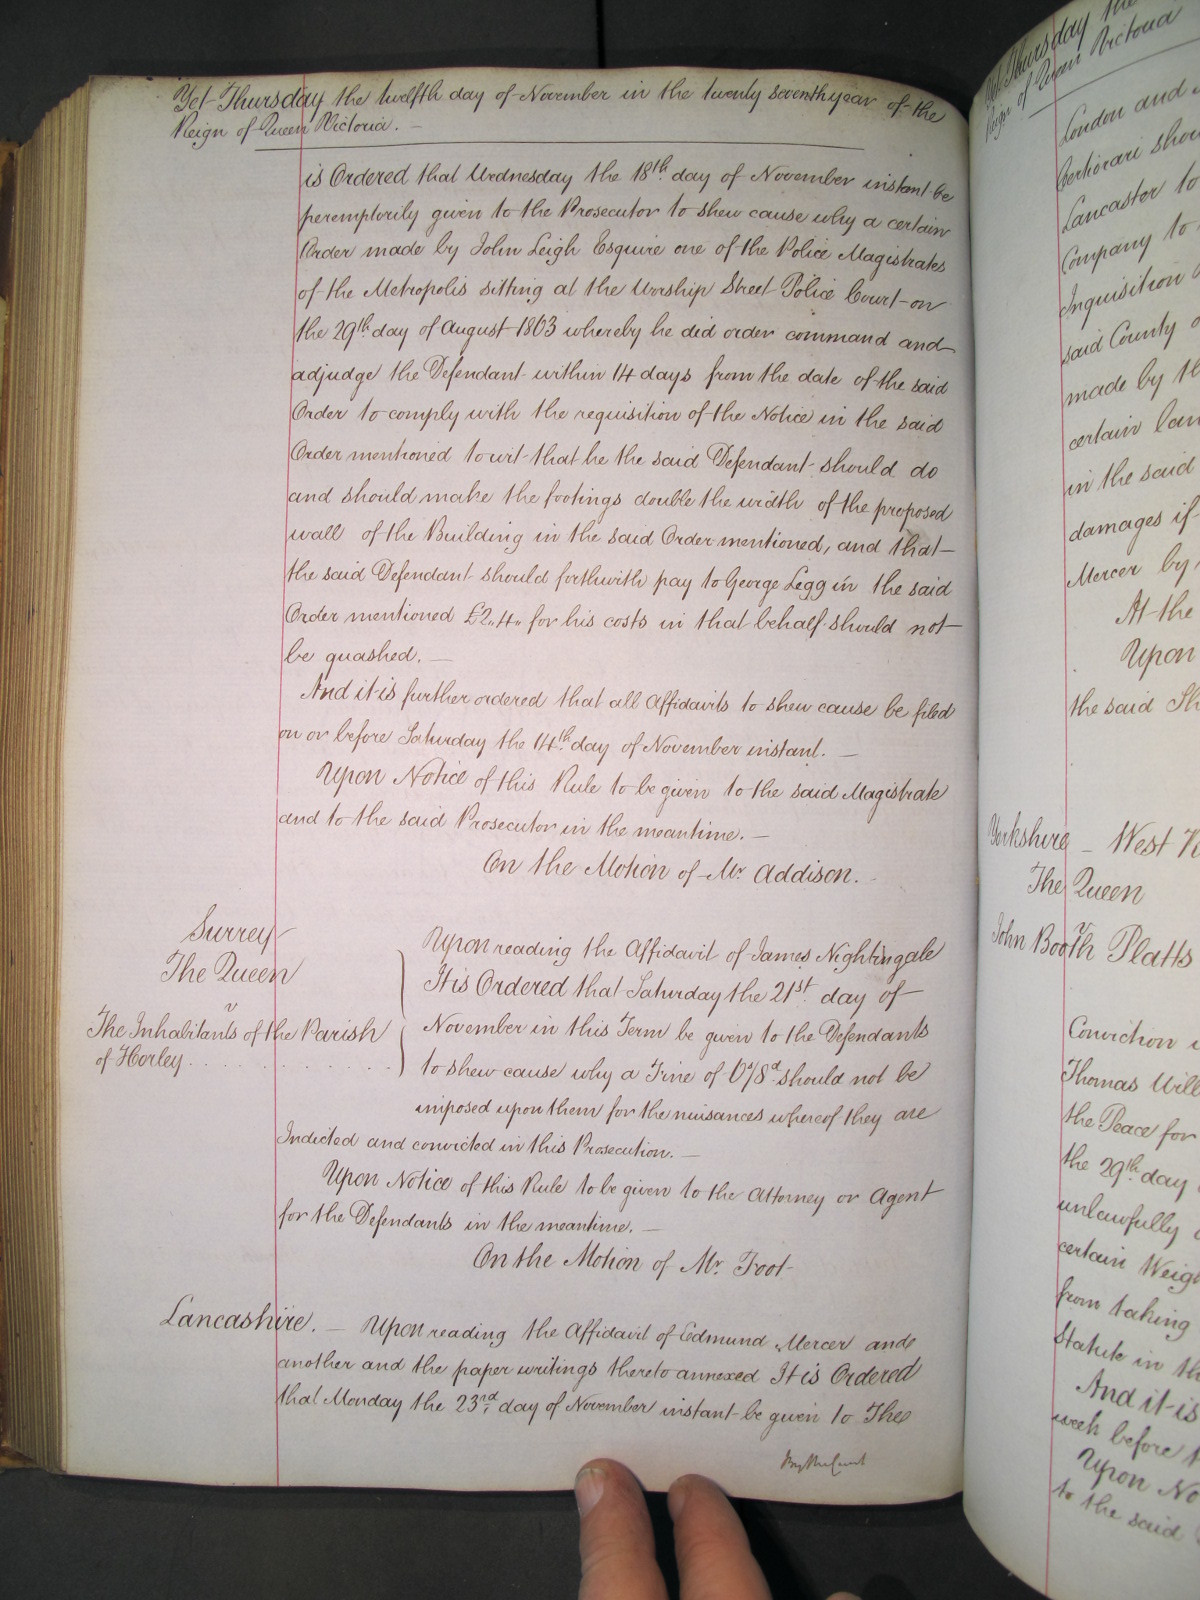 Yet Thursday the twelfth day of November in the twenty seventh year of the
Reign of Queen Victoria. —
is Ordered that Wednesday the 18th day of November instant be
peremptorily given to the Prosecutor to shew cause why a certain
Order made by John Leigh Esquire one of the Police Magistrates
of the Metropolis sitting at the Worship Street Police Court on
the 29th day of August 1863 whereby he did order command and
adjudge the Defendant within 14 days from the date of the said
Order to comply with the requisition of the Notice in the said
Order mentioned to wit that he the said Defendant should do
and should make the footings double the width of the proposed
wall of the Building in the said Order mentioned, and that
the said Defendant should forthwith pay to George Legg in the said
Order mentioned £2,,4,, for his costs in that behalf should not
be quashed. —
And it is further ordered that all Affidavits to shew cause be filed
on or before Saturday the 14th day of November instant. —
Upon Notice of this Rule to be given to the said Magistrate
and to the said Prosecutor in the meantime. —
On the Motion of Mr Addison.
Surrey
The Queen
v
The Inhabitants of the Parish
of Horley. . . . . . . . . . . .
Upon reading the Affidavit of James Nightingale
It is Ordered that Saturday the 21st day of
November in this Term be given to the Defendants
to shew cause why a Fine of 6s/8d should not be
imposed upon them for the nuisances whereof they are
Indicted and convicted in this Prosecution. —
Upon Notice of this Rule to be given to the Attorney or Agent
for the Defendants in the meantime. —
On the Motion of Mr. Foot
Lancashire. — Upon reading the Affidavit of Edmund Mercer and
another and the paper writings thereto annexed It is Ordered
that Monday the 23rd day of November instant be given to The
Yet Thursday the
Reign of Queen Victoria
London and
Certiorari
Lancaster to
Company to
Inquisition
said County
made by
certain
in the said
damages if
Mercer by
At the
Upon
the said
Yorkshire — West
The Queen
v
John Booth Platts
Conviction
Thomas
the Peace for
the 29th day
unlawfully
certain
from taking
Statute in
And it is
week before
Upon
to the said